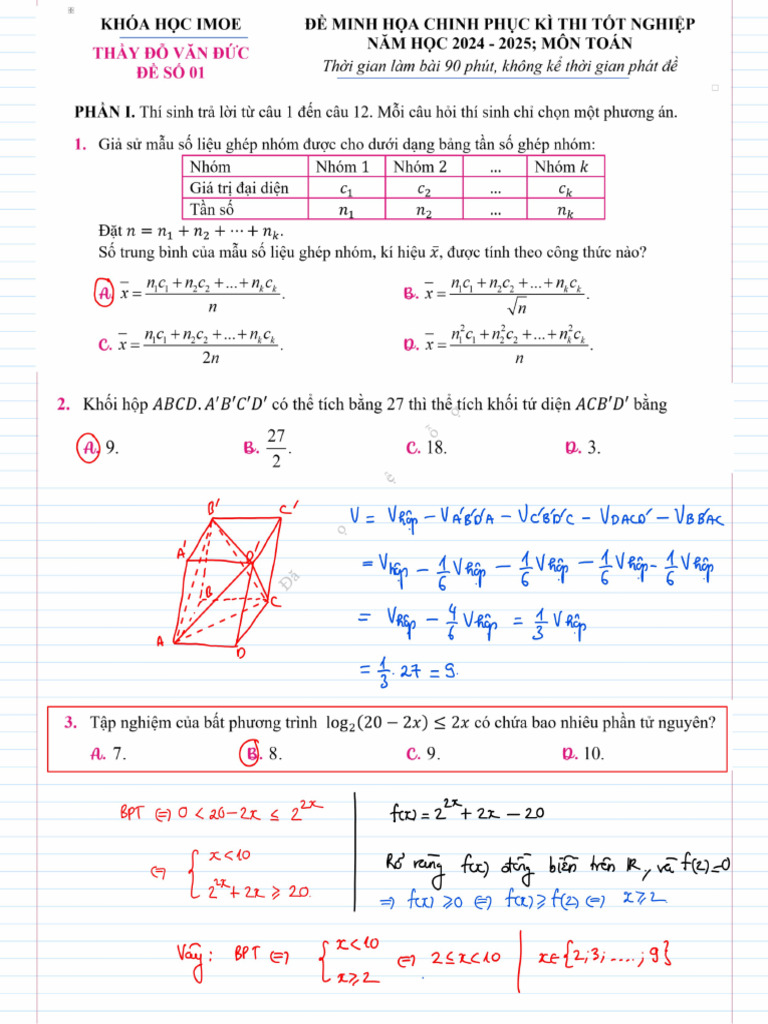 KHÓA HỌC IMOE
THẦY ĐỖ VĂN ĐỨC
ĐỀ SỐ 01
ĐỀ MINH HỌA CHINH PHỤC KÌ THI TỐT NGHIỆP
NĂM HỌC 2024 - 2025; MÔN TOÁN
Thời gian làm bài 90 phút, không kể thời gian phát đề
PHẦN I. Thí sinh trả lời từ câu 1 đến câu 12. Mỗi câu hỏi thí sinh chỉ chọn một phương án.
1. Giả sử mẫu số liệu ghép nhóm được cho dưới dạng bảng tần số ghép nhóm:
Nhóm Nhóm 1 Nhóm 2 ... Nhóm k
Giá trị đại diện c₁ c₂ ... cₖ
Tần số n₁ n₂ ... nₖ
Đặt n = n₁ + n₂ + ⋯ + nₖ.
Số trung bình của mẫu số liệu ghép nhóm, kí hiệu x̄, được tính theo công thức nào?
A. x̄ = (n₁c₁ + n₂c₂ + ... + nₖcₖ)/n. B. x̄ = (n₁c₁ + n₂c₂ + ... + nₖcₖ)/√n.
C. x̄ = (n₁c₁ + n₂c₂ + ... + nₖcₖ)/2n. D. x̄ = (n₁²c₁ + n₂²c₂ + ... + nₖ²cₖ)/n.
2. Khối hộp ABCD.A'B'C'D' có thể tích bằng 27 thì thể tích khối tứ diện ACB'D' bằng
A. 9. B. 27/2. C. 18. D. 3.
B' C'
A' D'
B C
A D
V = Vhộp − VA'B'D'A − VC'B'D'C − VDACD' − VBB'AC
= Vhộp − 1/6 Vhộp − 1/6 Vhộp − 1/6 Vhộp − 1/6 Vhộp
= Vhộp − 4/6 Vhộp = 1/3 Vhộp
= 1/3 . 27 = 9.
3. Tập nghiệm của bất phương trình log₂(20 − 2x) ≤ 2x có chứa bao nhiêu phần tử nguyên?
A. 7. B. 8. C. 9. D. 10.
BPT ⇔ 0 < 20 − 2x ≤ 2²ˣ
⇔ { x < 10
2²ˣ + 2x ⩾ 20.
f(x) = 2²ˣ + 2x − 20
Rõ ràng f(x) đồng biến trên R, và f(2) = 0
⇒ f(x) ⩾ 0 ⇔ f(x) ⩾ f(2) ⇔ x ⩾ 2
Vậy: BPT ⇔ { x < 10
x ⩾ 2
⇔ 2 ≤ x < 10 | x ∈ {2; 3; ....; 9}